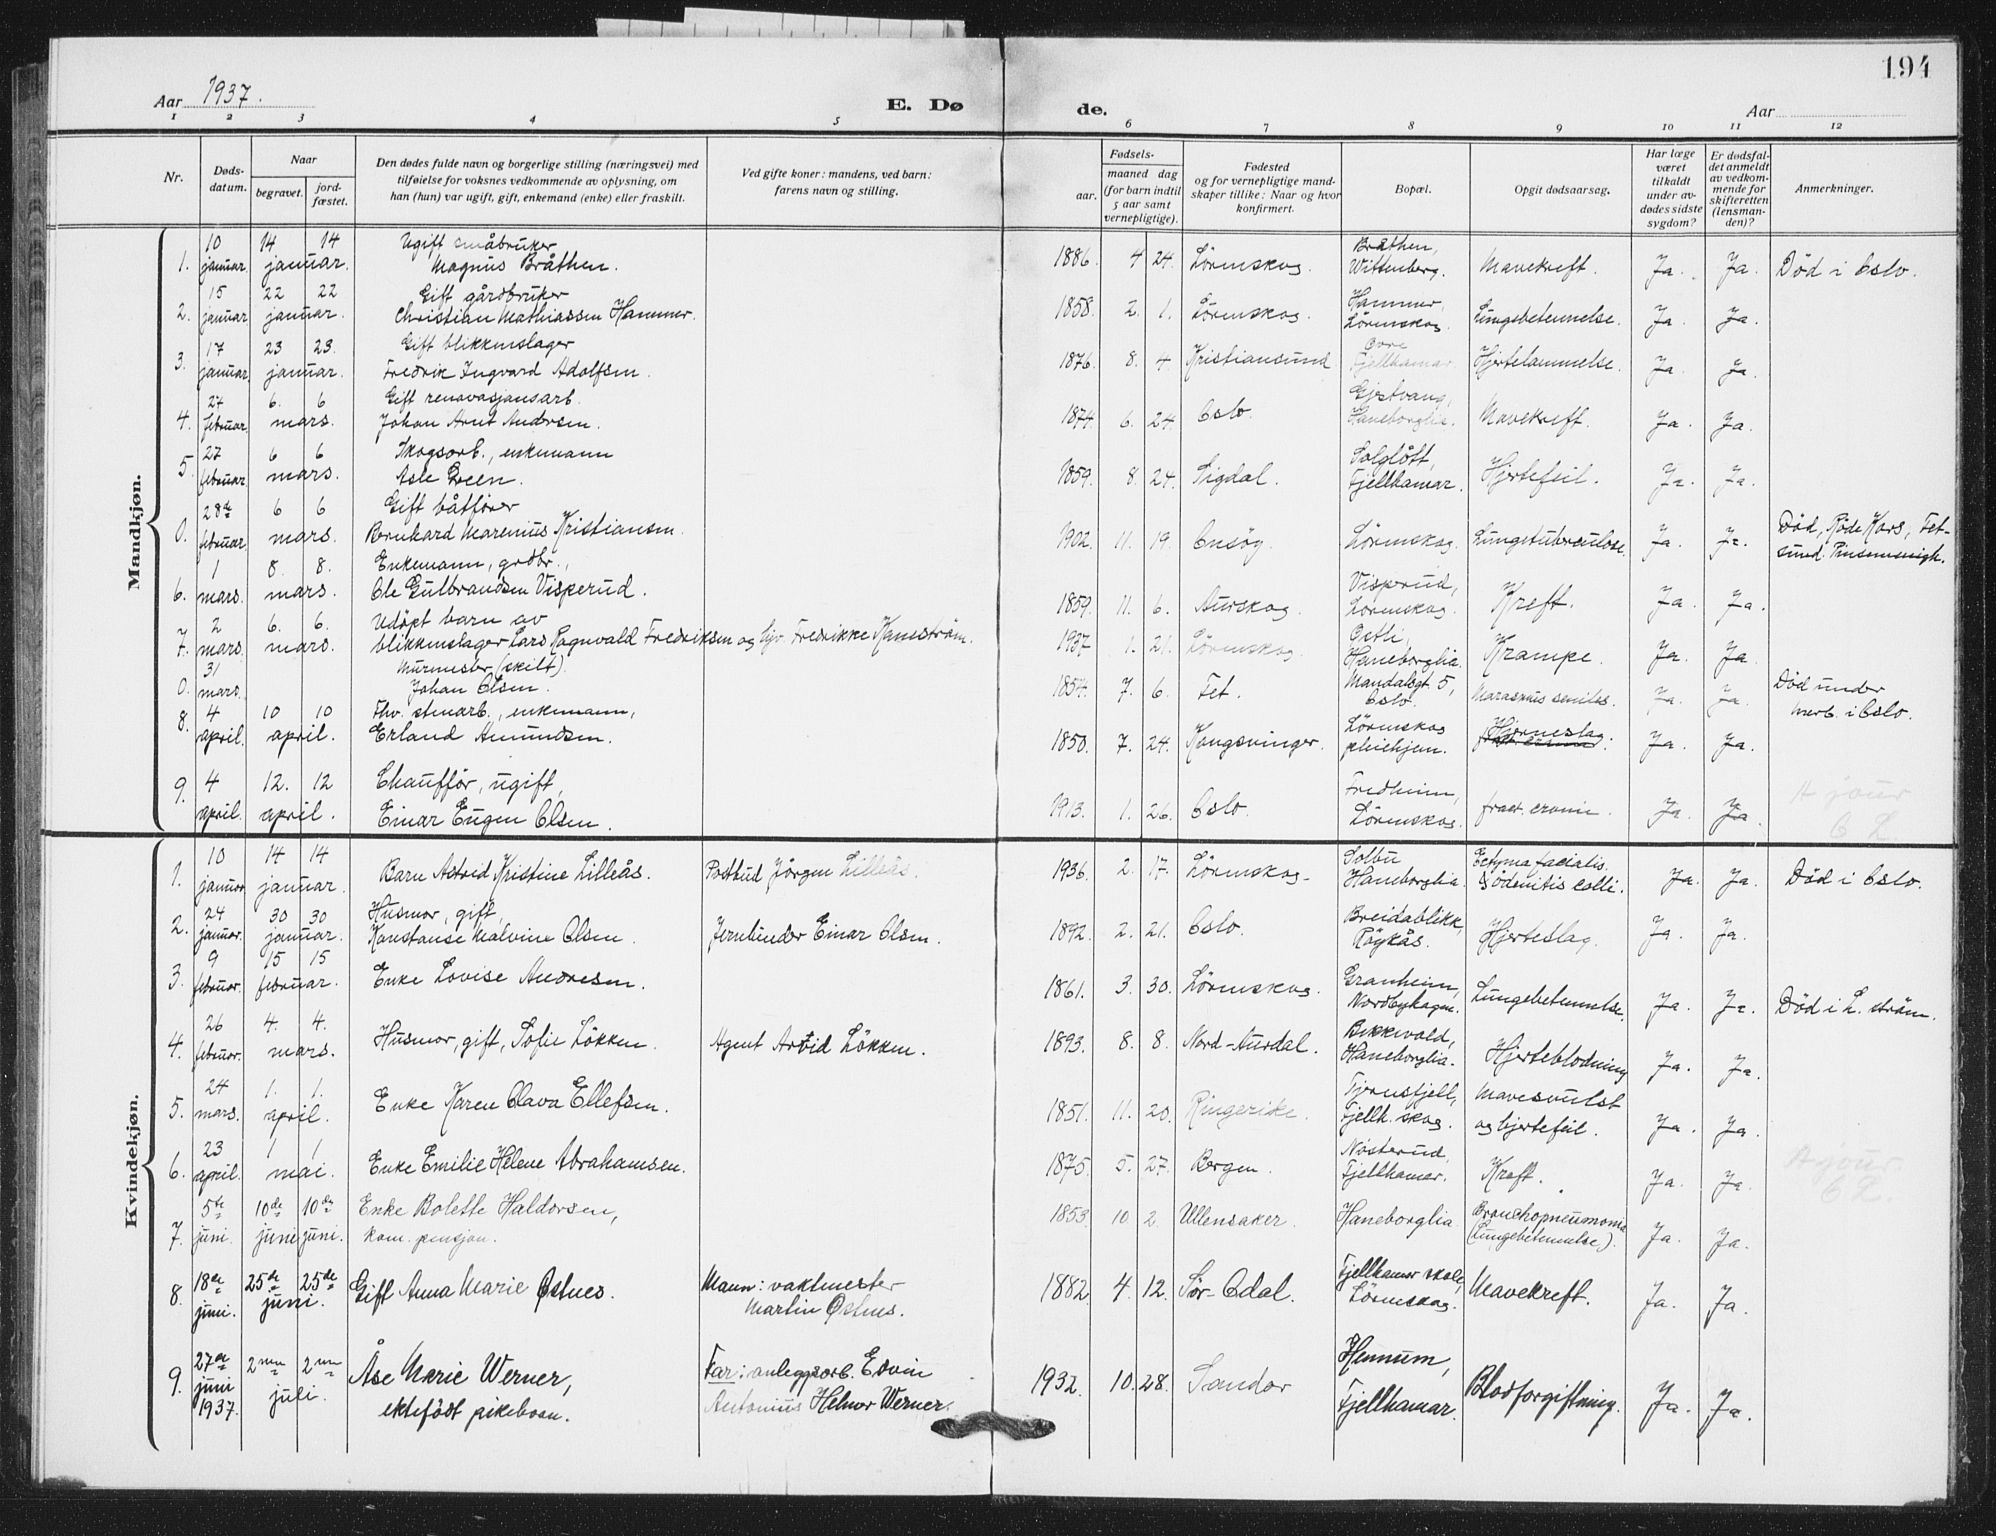 194
Aar 1937.
E. Dø
de.
Aar
1 2 3 4 5 6 7 8 9 10 11 12
Nr.
Døds-
datum.
Naar
begravet.
jord-
fæstet.
Den dødes fulde navn og borgerlige stilling (næringsvei) med
tilføielse for voksnes vedkommende av oplysning, om
han (hun) var ugift, gift, enkemand (enke) eller fraskilt.
Ved gifte koner: mandens, ved barn:
farens navn og stilling.
Fødsels-
aar.
maaned dag
(for barn indtil
5 aar samt
vernepligtige).
Fødested
og for vernepligtige mand-
skaper tillike: Naar og hvor
konfirmert.
Bopæl.
Opgit dødsaarsag.
Har læge
været
tilkaldt
under av-
dødes sidste
sygdom?
Er dødsfal-
det anmeldt
av vedkom-
mende for
skifteretten
(lensman-
den)?
Anmerkninger.
Mandkjøn.
10 14 14 Ugift småbruker Bråthen,
1. januar. januar. Magnus Bråthen. 1886. 4 24. Lörenskog Wittenberg. Mavekreft. Ja. Ja. Död i Oslo.
15 22 22 Gift gårdbruker Hammer,
2. januar januar. Christian Mathiassen Hammer. 1858. 2. 1. Lörenskog Lörenskog. Lungebetennelse. Ja. Ja.
17 23 23. Gift blikkenslager Övre
3. januar. januar. Fredrik Ingvard Adolfsen. 1876. 8. 4 Kristiansund Fjellhamar Hjertelammelse. Ja. Ja.
27 6. 6 Gift renovasjonsarb. Gjestvang,
4. februar. mars. Johan Arnt Andersen. 1874. 6. 24. Oslo. Haneborglia. Mavekreft. Ja. Ja.
27 6 6 Skogsarb., enkemann Solglött,
5. februar mars. Asle Green. 1859. 8. 24. Sigdal. Fjellhamar. Hjertefeil. Ja. Ja.
28de 6 6 Gift båtförer
0. februar mars. Bernhard Marenius Kristiansen. 1902. 11. 19. Onsöy. Lörenskog. Lungetuberculose. Ja. Ja. Död, Röde Kors, Fet-
sund.
1 8. 8. Enkemann, grdbr., Visperud,
6. mars. mars. Ole Gulbrandsen Visperud. 1859. 11. 6. Aurskog. Lörenskog. Kreft. Ja. Ja.
2 6. 6. Udöpt barn av Östli,
7. mars. mars. blikkenslager Lars Ragnvald Fredriksen og Fredrikke Kanström. 1937 1. 21. Lörenskog. Haneborglia. Krampe. Ja. Ja
31 Murmester (skilt). Mandalsgt. 5,
0. mars. Johan Olsen. 1854. 7. 6. Fet. Oslo. Marasmus senilis. Ja. Ja. Död under
i Oslo.
4 10 10 Fhv. stenarb., enkemann, Lörenskog Hjerneslag.
8. april. april. Erland Amundsen. 1850. 7. 24. Kongsvinger. pleiehjem. Ja. Ja.
4 12. 12 Chaufför, ugift, Fredheim,
9. april. april. Einar Eugen Olsen. 1913. 1. 26. Oslo. Lörenskog. fract. cranii. Ja. Ja. A jour
Kvindekjøn.
10 14 14 Solbu Ectyma facialis.
1. januar. januar. Barn Astrid Kristine Lilleås. Postbud Jörgen Lilleås. 1936. 2. 17. Lörenskog Haneborglia. colli. Ja. Ja. Död i Oslo.
24 30 30 Husmor, gift, Breidablikk,
2. januar. januar. Konstanse Malvine Olsen. Jernbinder Einar Olsen. 1892. 2. 21. Oslo. Röykås. Hjerteslag. Ja. Ja.
9 15 15 Granheim,
3. februar. februar. Enke Lovise Andresen. 1861. 3. 30. Lörenskog. Nordbyhagen. Lungebetennelse. Ja. Ja. Död i L. ström.
26 4. 4. Bekkevold,
4. februar. mars. Husmor, gift, Sofie Lökken. Agent Arvid Lökken. 1893. 8. 8. Nord-Aurdal. Haneborglia. Hjerteblodning Ja. Ja.
24 1. 1. Tyrousfjell, Mavesvulst
5. mars. april. Enke Karen Olava Ellefsen. 1851. 11. 20. Ringerike. Fjellh. skog. og hjertefeil. Ja. Ja.
23 1 1 Nösterud,
6. april. mai. Enke Emilie Helene Abrahamsen. 1875. 5. 27. Bergen. Fjellhamar. Kreft. Ja. Ja. A jour.
5te 10de 10de Enke Bolette Haldorsen, Bronchopneumonia
7. juni. juni juni. kom. pensjon. 1853. 10 2. Ullensaker. Haneborglia (Lungebetennelse). Ja. Ja.
18de 25de 25de Mann: vaktmester Fjellhamar skole,
8. juni. juni. Gift Anna Marie Østnes. Martin Østnes. 1882. 4. 12. Sör-Odal. Lörenskog. Mavekreft. Ja. Ja.
27de 2nen 2nen Åse Marie Werner, Far: anleggsarb. Edvin Hennum,
9. juni juli. ektefödt pikebarn. Antonius Helmer Werner. 1932. 10. 28. Sandar Fjellhamar. Blodforgiftning. Ja. Ja.
1937.